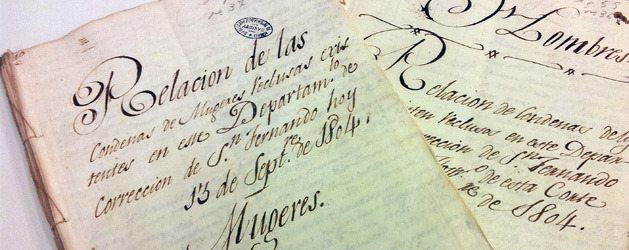 Relacion de las
Condenas de Mugeres Reclusas exis
tentes en este Departam.to de
Correccion de S.n Fernando hoy
15 de Sept.re de 1804.
Mugeres.
Hombres
Relacion de Condenas de
Reclusos en este Depar
Correccion de S.n Fernando
de esta Corte
de 1804.